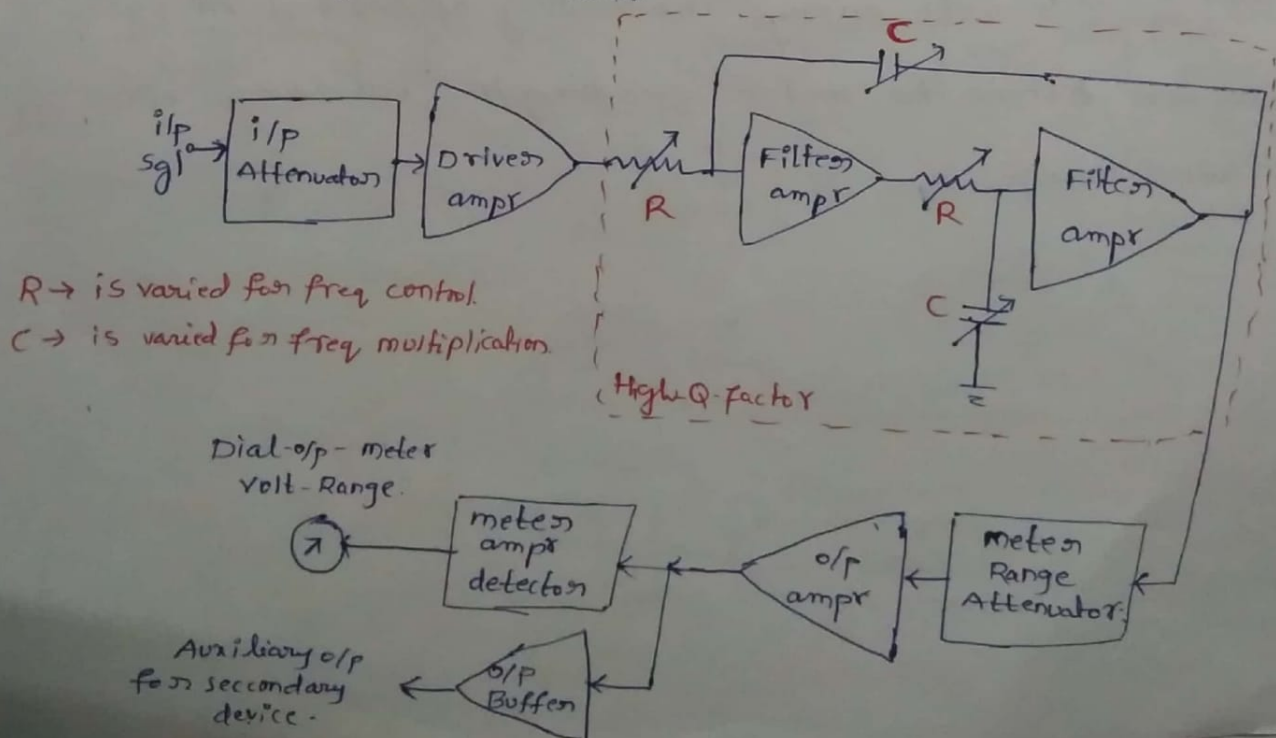 C
i/p
sgl
i/p
Attenuator
Driver
ampr
R
Filter
ampr
R
Filter
ampr
C
R → is varied for freq control.
C → is varied for freq multiplication.
High-Q-factor
Dial-o/p-meter
Volt-Range.
meter
ampr
detector
o/p
ampr
meter
Range
Attenuator.
Auxiliary o/p
for seccondary
device.
o/p
Buffer